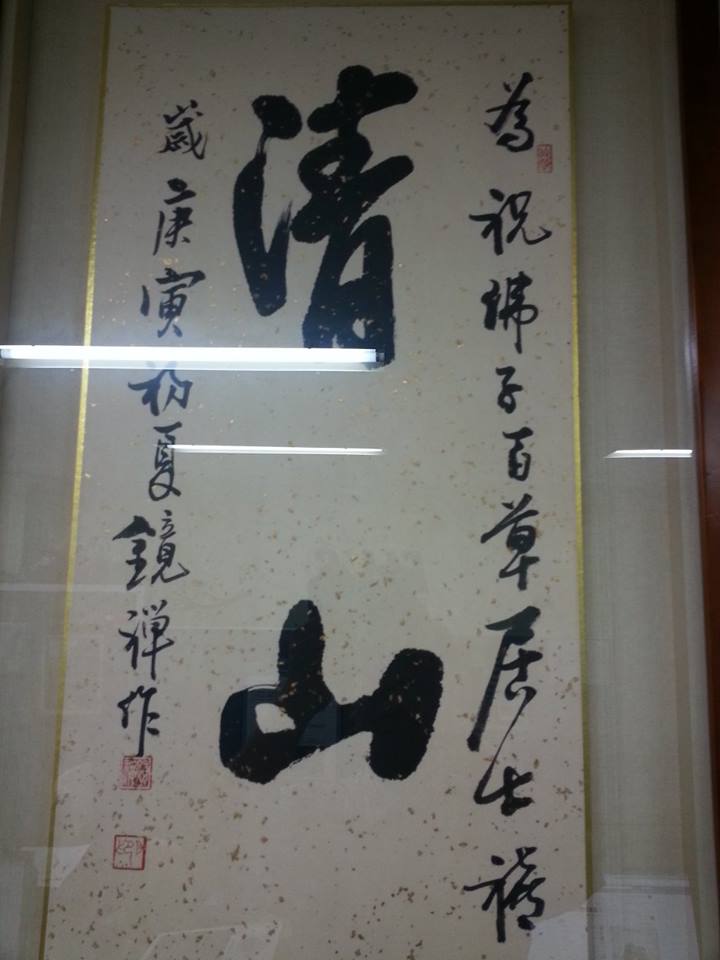 為祝佛子百草居士禧
清山
歲庚寅初夏鏡禪作